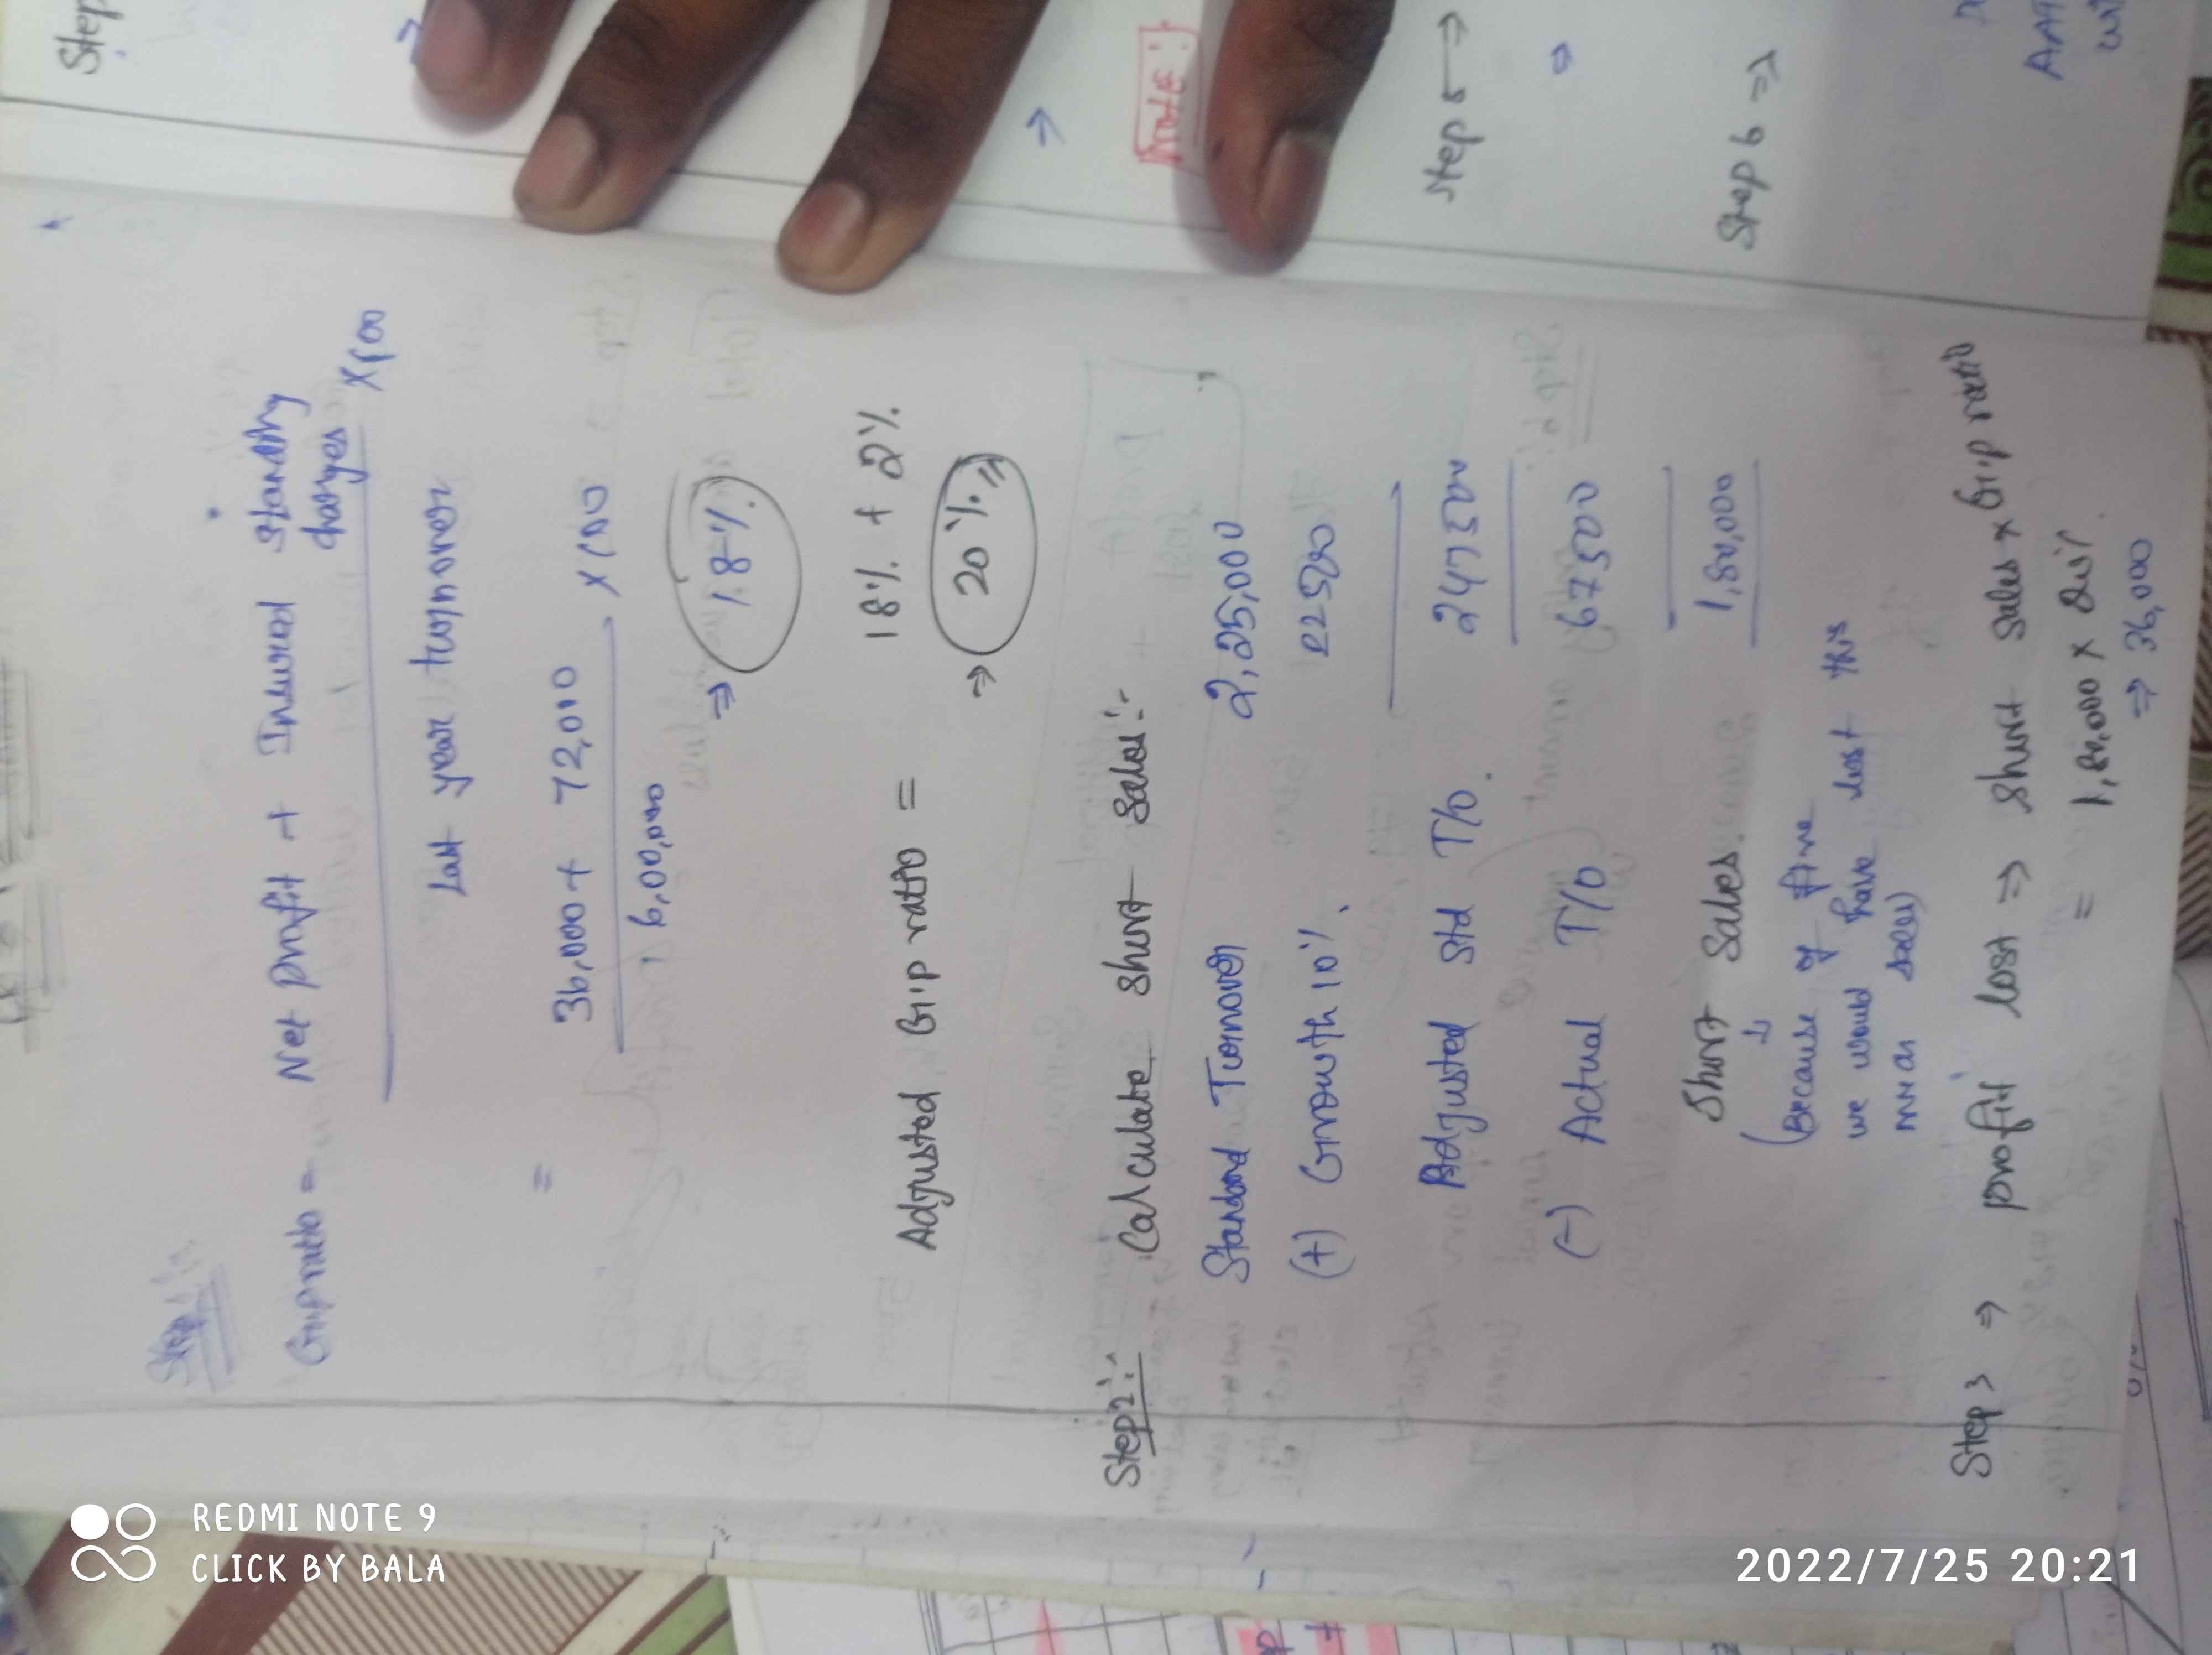 Step 1:
G.P ratio = Net profit + Insured standing charges X100
Last year turnover
= 36,000 + 72,000 X100
6,00,000
⇒ 18%
Adjusted G.P ratio = 18% + 2%
⇒ 20%
Step 2: Calculate short sales:-
Standard Turnover 2,25,000
(+) Growth 10% 22500
Adjusted Std T/O. 247500
(-) Actual T/O 67500
Short Sales 1,80,000
↓
(Because of fire
we would have lost this
much sales)
Step 3 ⇒ profit lost ⇒ short sales x G.P ratio
= 1,80,000 x 20%
⇒ 36,000
Step
⇒
⇒
Note:
Step 5 →
⇒
Step 6 ⇒
REDMI NOTE 9
CLICK BY BALA
2022/7/25 20:21